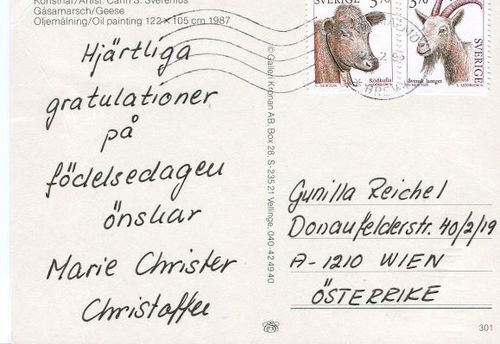 Konstnär/Artist: Carin S. Sverenius
Gåsamarsch/Geese
Oljemålning/Oil painting 122 x 105 cm 1987
Hjärtliga
gratulationer
på
födelsedagen
önskar
Marie Christer
Christoffer
© Galleri Kronan AB, Box 28, S-235 21 Vellinge, 040-42 49 40
3 70
SVERIGE
Rödkulla
3 70
SVERIGE
Svensk lantget
BREV
Gunilla Reichel
Donaufelderstr. 40/2/19
A-1210 WIEN
ÖSTERRIKE
301